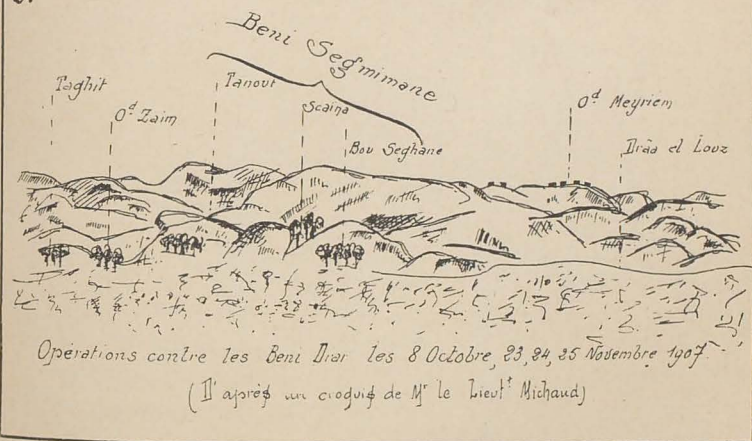 Beni Segmimane
Taghit
Od Zaim
Tanout
Scaina
Bou Seghane
Od Meyriem
Drâa el Louz
Opérations contre les Beni Drar les 8 Octobre, 23, 24, 25 Novembre 1907.
(D'après un croquis de Mr le Lieutt Michaud)